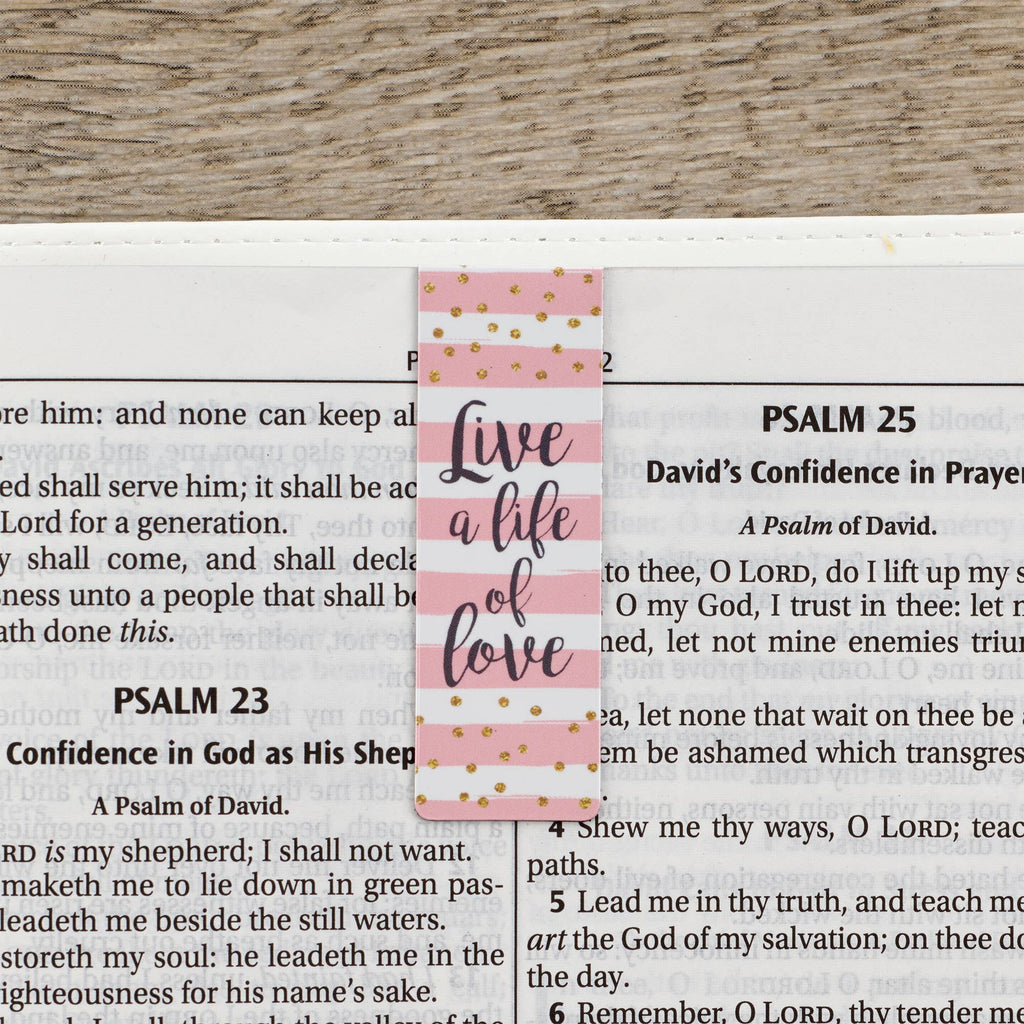 Live
a life
of
love
ore him: and none can keep al
ed shall serve him; it shall be ac
Lord for a generation.
y shall come, and shall decla
sness unto a people that shall be
ath done this.
PSALM 23
Confidence in God as His Shep
A Psalm of David.
RD is my shepherd; I shall not want.
maketh me to lie down in green pas-
leadeth me beside the still waters.
storeth my soul: he leadeth me in the
ighteousness for his name's sake.
PSALM 25
David's Confidence in Prayer
A Psalm of David.
to thee, O LORD, do I lift up my s
O my God, I trust in thee: let n
ned, let not mine enemies triu
ea, let none that wait on thee be a
em be ashamed which transgres
4 Shew me thy ways, O LORD; teac
paths.
5 Lead me in thy truth, and teach me
art the God of my salvation; on thee do
the day.
6 Remember, O LORD, thy tender me